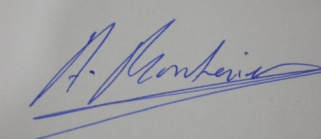 A. Monteiro